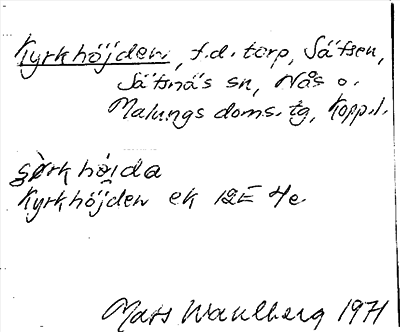 Kyrkhöjden, f.d. torp, Säfsen,
Säfsnäs sn, Nås o.
Malungs doms. tg, Kopp.l.
Kyrkhöjden ek 12E 4e
Mats Wahlberg 1971